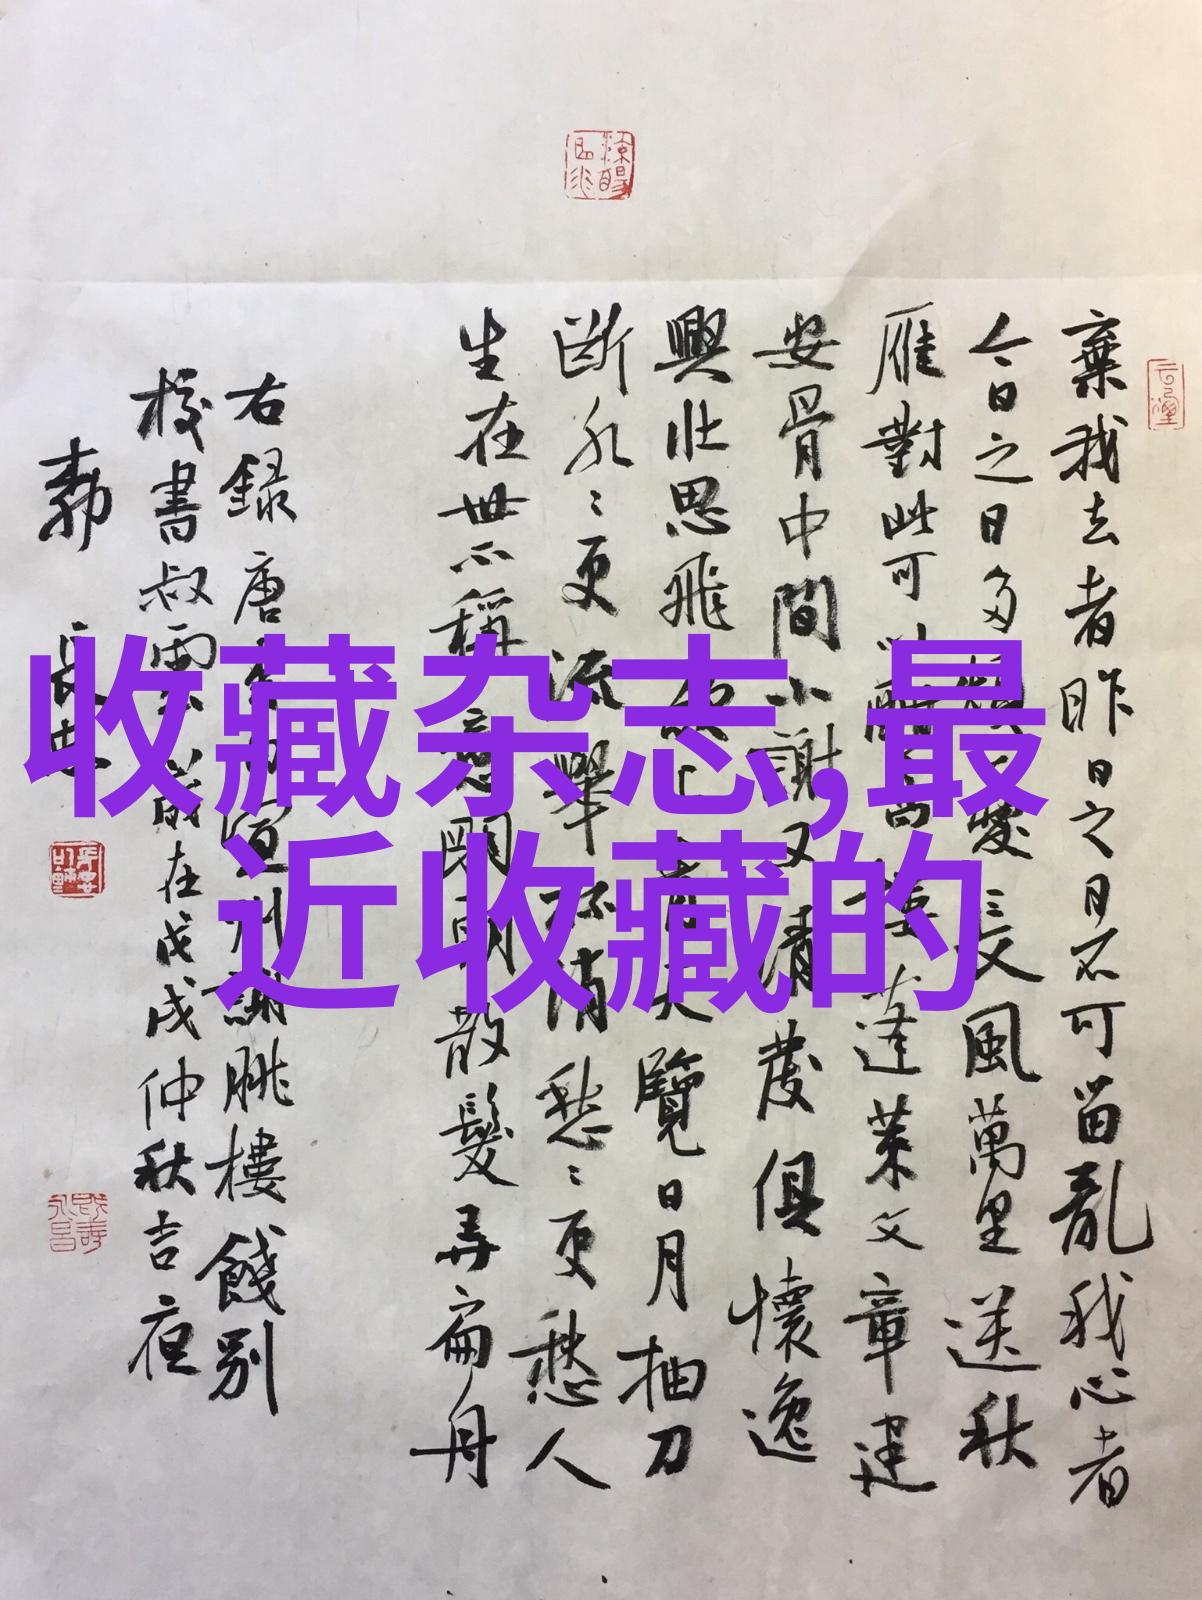 收藏杂志,最
近收藏的
棄我去者昨日之日不可留亂我心者
今日之日多煩憂長風萬里送秋
雁對此可以酣高樓蓬萊文章建
安骨中間小謝又清發俱懷逸
興壯思飛欲上青天覽日月抽刀
斷水々更流舉杯消愁々更愁人
生在世不稱意明朝散髮弄扁舟
右録唐李白宣州謝朓樓餞別
校書叔雲歲在戊戌仲秋吉夜